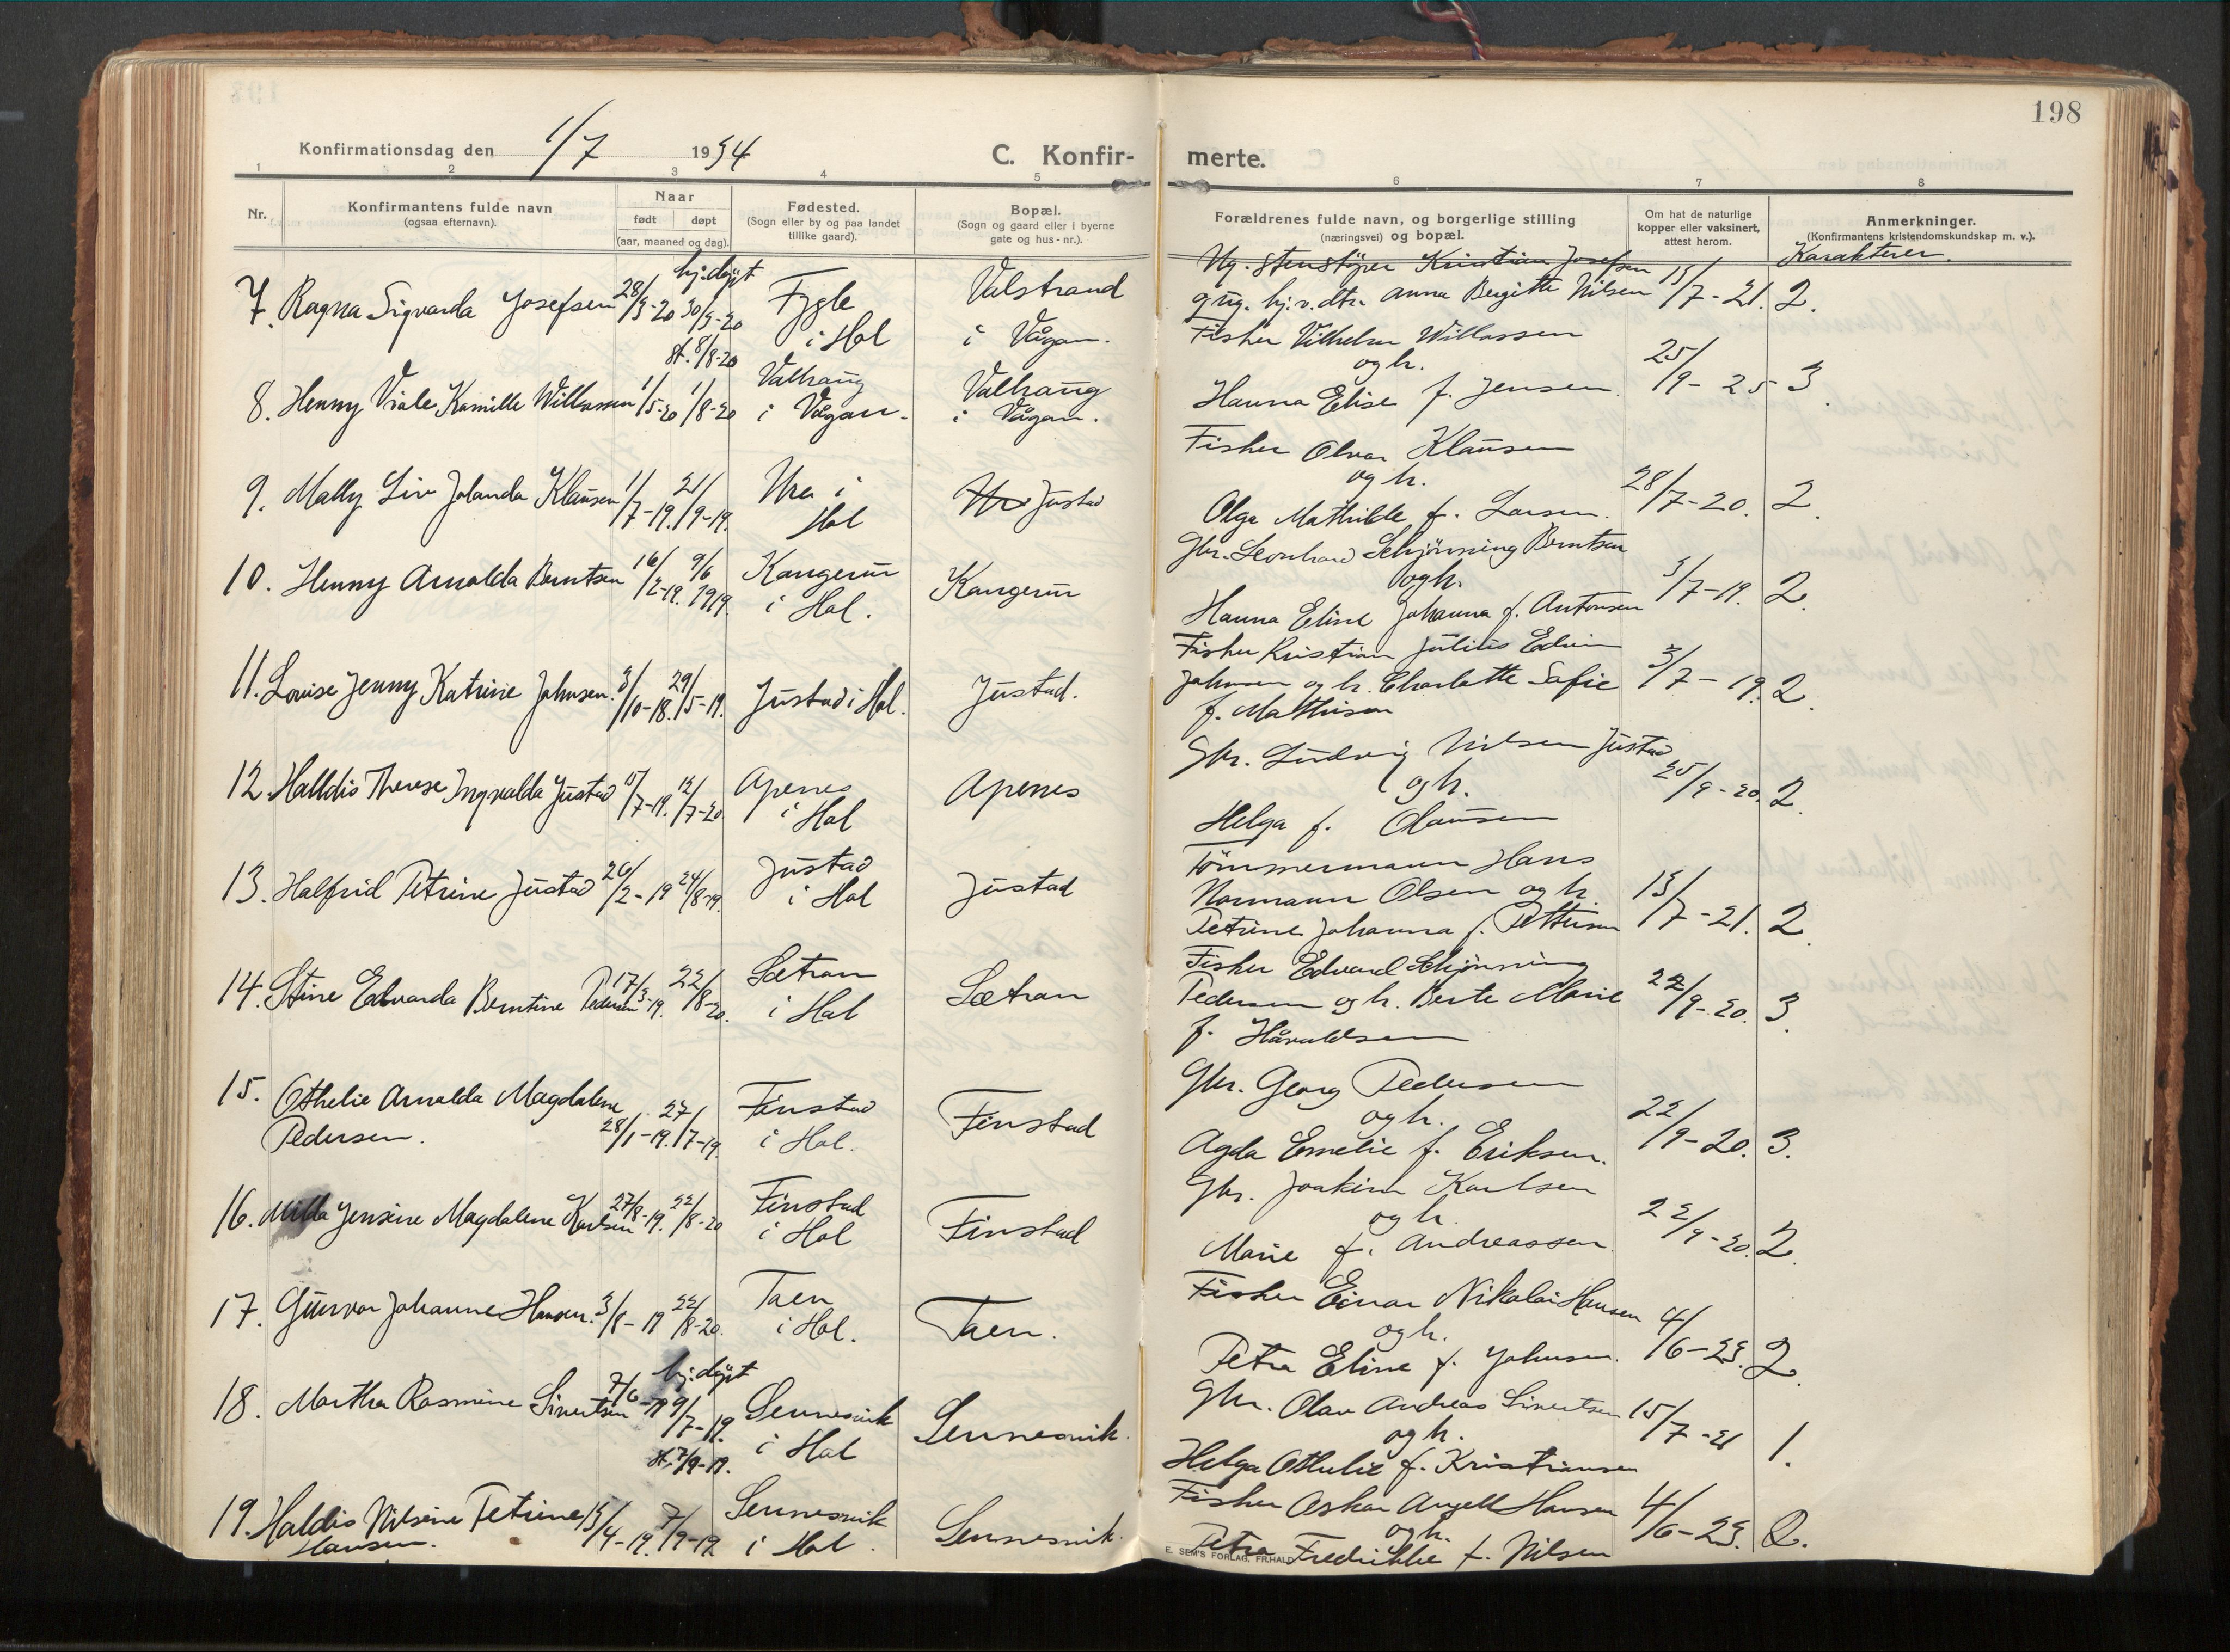 198
Konfirmationsdag den 1/7 1934
C. Konfir- merte.
1 2 3 4 5 6 7 8
Nr.
Konfirmantens fulde navn
(ogsaa efternavn).
Naar
født døpt
(aar, maaned og dag).
Fødested.
(Sogn eller by og paa landet
tillike gaard).
Bopæl.
(Sogn og gaard eller i byerne
gate og hus-nr.).
Forældrenes fulde navn, og borgerlige stilling
(næringsvei) og bopæl.
Om hat de naturlige
kopper eller vaksinert,
attest herom.
Anmerkninger.
(Konfirmantens kristendomskundskap m. v.).
Karakterer.
7. Ragna Sigvarda Josefsen 28/5-20 hj.døpt 30/5-20 st. 8/8-20
Fygle
i Hol
Valstrand
i Vågan.
Ug. stenstøper Kristian Josefsen
g ug. hj.v.dtr. Anna Bergitte Nilsen 15/7-21. 2.
8. Henny Viole Kamille Willassen 1/5-20 1/8-20
Valhaug
i Vågan.
Valhaug
i Vågan.
Fisker Vilhelm Willassen
og h.
Hanna Elise f. Jensen 25/9-25 3.
9. Mally Liv Jolanda Klausen 1/7-19. 21/9-19.
Ure i
Hol
Ure Justad
Fisker Olvar Klausen
og h.
Olga Mathilde f. Larsen. 28/7-20. 2.
10. Henny Arnolda Berntsen 16/2-19. 9/6 1919.
Kangerur
i Hol.
Kangerur
Gbr. Leonhard Schjønning Berntsen
og h.
Hanna Eline Johanna f. Antonsen 3/7-19. 2.
11. Louise Jenny Katrine Johnsen. 3/10-18. 29/5-19.
Justad i Hol.
Justad.
Fisker Kristian Julius Edvin
Johnsen og h. Charlotte Sofie
f. Mathisen 3/7-19. 2.
12. Halldis Therese Ingvalda Justad 15/7-19. 12/7-20.
Apenes
i Hol
Apenes
Gbr. Ludvig Nilsen Justad
og h.
Helga f. Olaussen 25/9-20. 2.
13. Halfrid Petrine Justad 26/2-19 24/8-19.
Justad
i Hol
Justad
Tømmermann Hans
Normann Olsen og h.
Petrine Johanna f. Pettersen 15/7-21. 2.
14. Stine Edvarda Berntine Pedersen 17/3-19. 22/8-20.
Sætran
i Hol
Sætran
Fisker Edvard Schjønning
Pedersen og h. Berte Marie
f. Håvaldsen 22/9-20. 3.
15. Othelie Arnolda Magdalene
Pedersen. 28/1-19. 27/7-19.
Finstad
i Hol.
Finstad
Gbr. Georg Pedersen
og h.
Agda Emelie f. Eriksen. 22/9-20. 3.
16. Milda Jensine Magdalene Karlsen 27/8-19. 22/8-20
Finstad
i Hol
Finstad
Gbr. Joakim Karlsen
og h.
Marie f. Andreassen 22/9-20. 2.
17. Gunvor Johanne Hansen. 3/8-19 22/8-20.
Taen
i Hol.
Taen.
Fisker Einar Nikolai Hansen
og h.
Petra Eline f. Johnsen. 4/6-23. 2.
18. Martha Rasmine Sivertsen 7/6-19 hj.døpt 9/7-19. st. 7/9-19.
Sennesvik
i Hol
Sennesvik.
Gbr. Olav Andreas Sivertsen
og h.
Helga Othelie f. Kristiansen 15/7-21 1.
19. Haldis Nilsine Petrine
Hansen. 13/4-19. 7/9-19
Sennesvik
i Hol.
Sennesvik.
Fisker Oskar Angell Hansen
og h.
Petra Fredrikke f. Nilsen 4/6-23. 2.
E. SEM'S FORLAG, FR.HALD